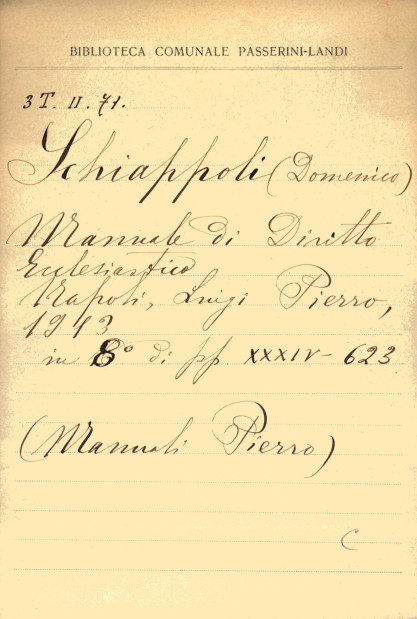 BIBLIOTECA COMUNALE PASSERINI-LANDI
3 T. II. 71.
Schiappoli (Domenico)
Manuale di Diritto
Ecclesiastico
Napoli, Luigi Pierro,
1913
in 8° di pp XXXIV - 623
(Manuali Pierro)
C